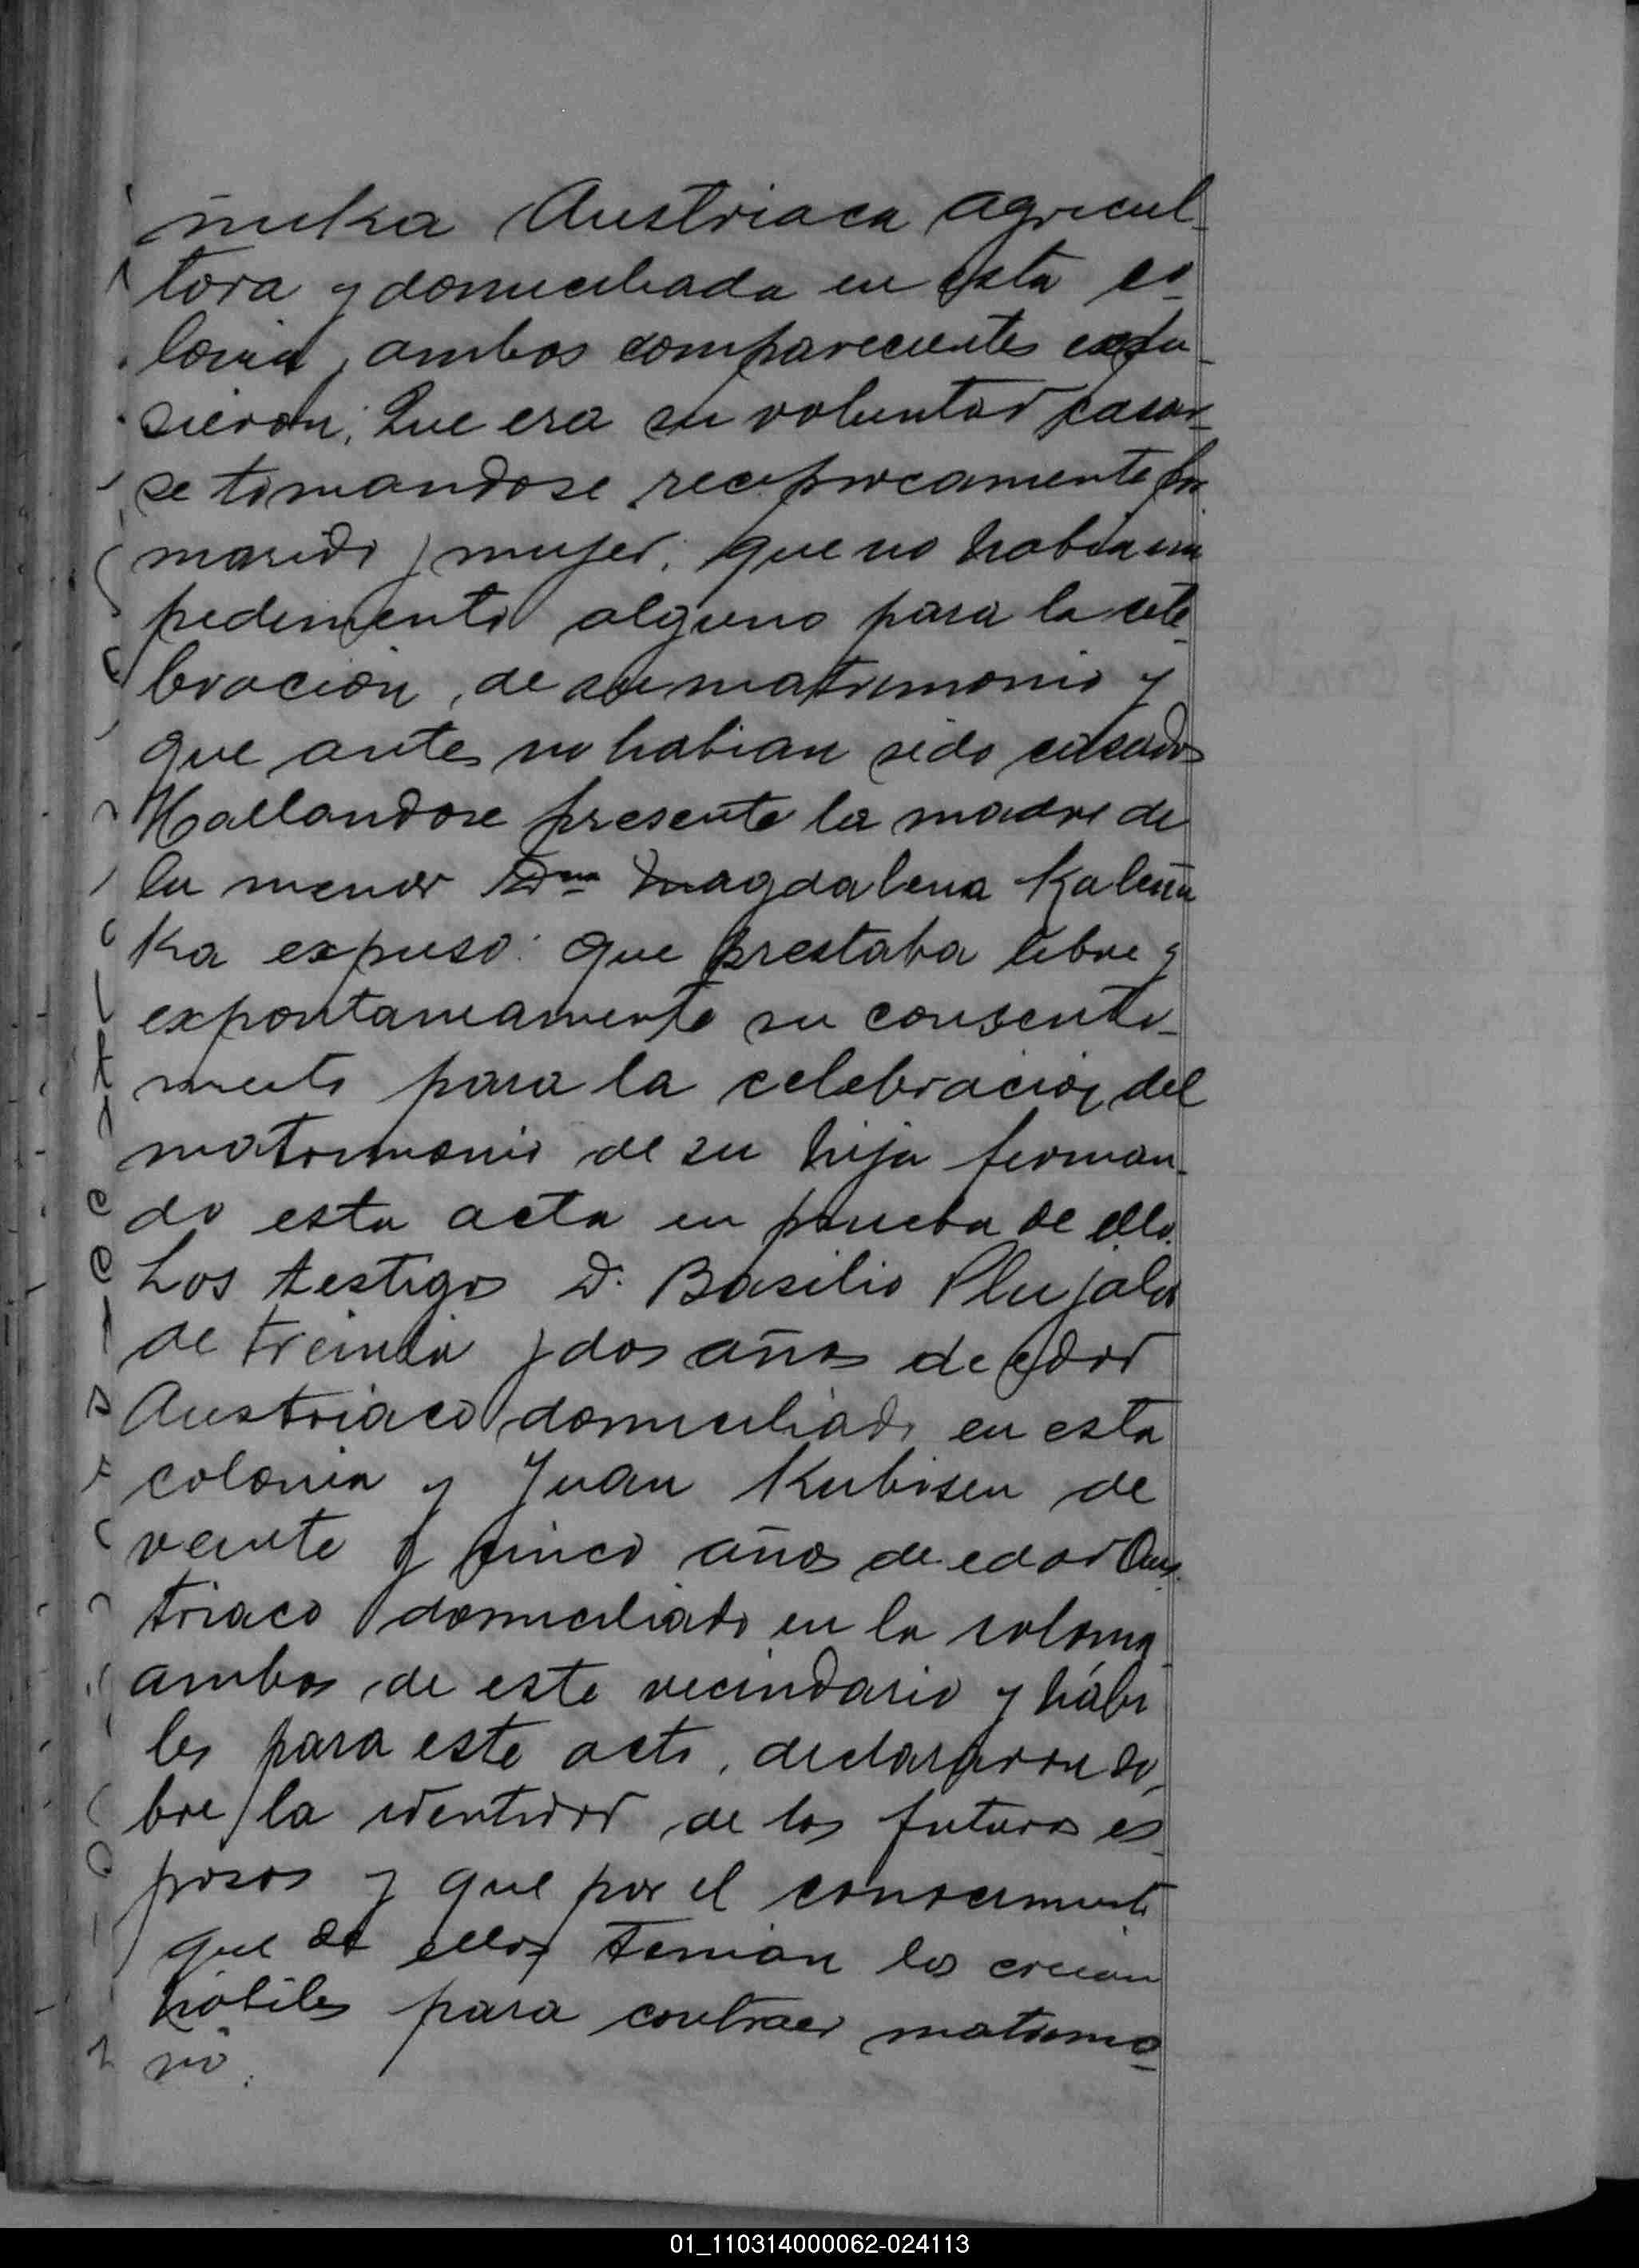 ñuka Austriaca agricul-
tora y domiciliada en esta co-
lonia, ambos comparecientes expu-
sieron; Que era su voluntad casar-
se tomandose reciprocamente por
marido y mujer; que no habia im
pedimento alguno para la cele-
bracion, de su matrimonio y
que antes no habian sido casados
Hallandose presente la madre de
la menor Dna Magdalena Kaleñu
ka expuso: que prestaba libre y
expontaneamente su consenti-
miento para la celebracion del
matrimonio de su hija firman-
do esta acta en prueba de ello.
Los testigos D. Basilio
de treinta y dos años de edad
Austriaco domiciliado en esta
colonia y Juan Kubisen de
veinte y cinco años de edad Aus-
triaco domiciliado en la colonia
ambos de este vecindario y hábi
les para este acto, declararon so-
bre la identidad de los futuros es
posos y que por el conocimiento
que de ellos tenian los creian
hábiles para contraer matrimo-
nio.
01_110314000062-024113